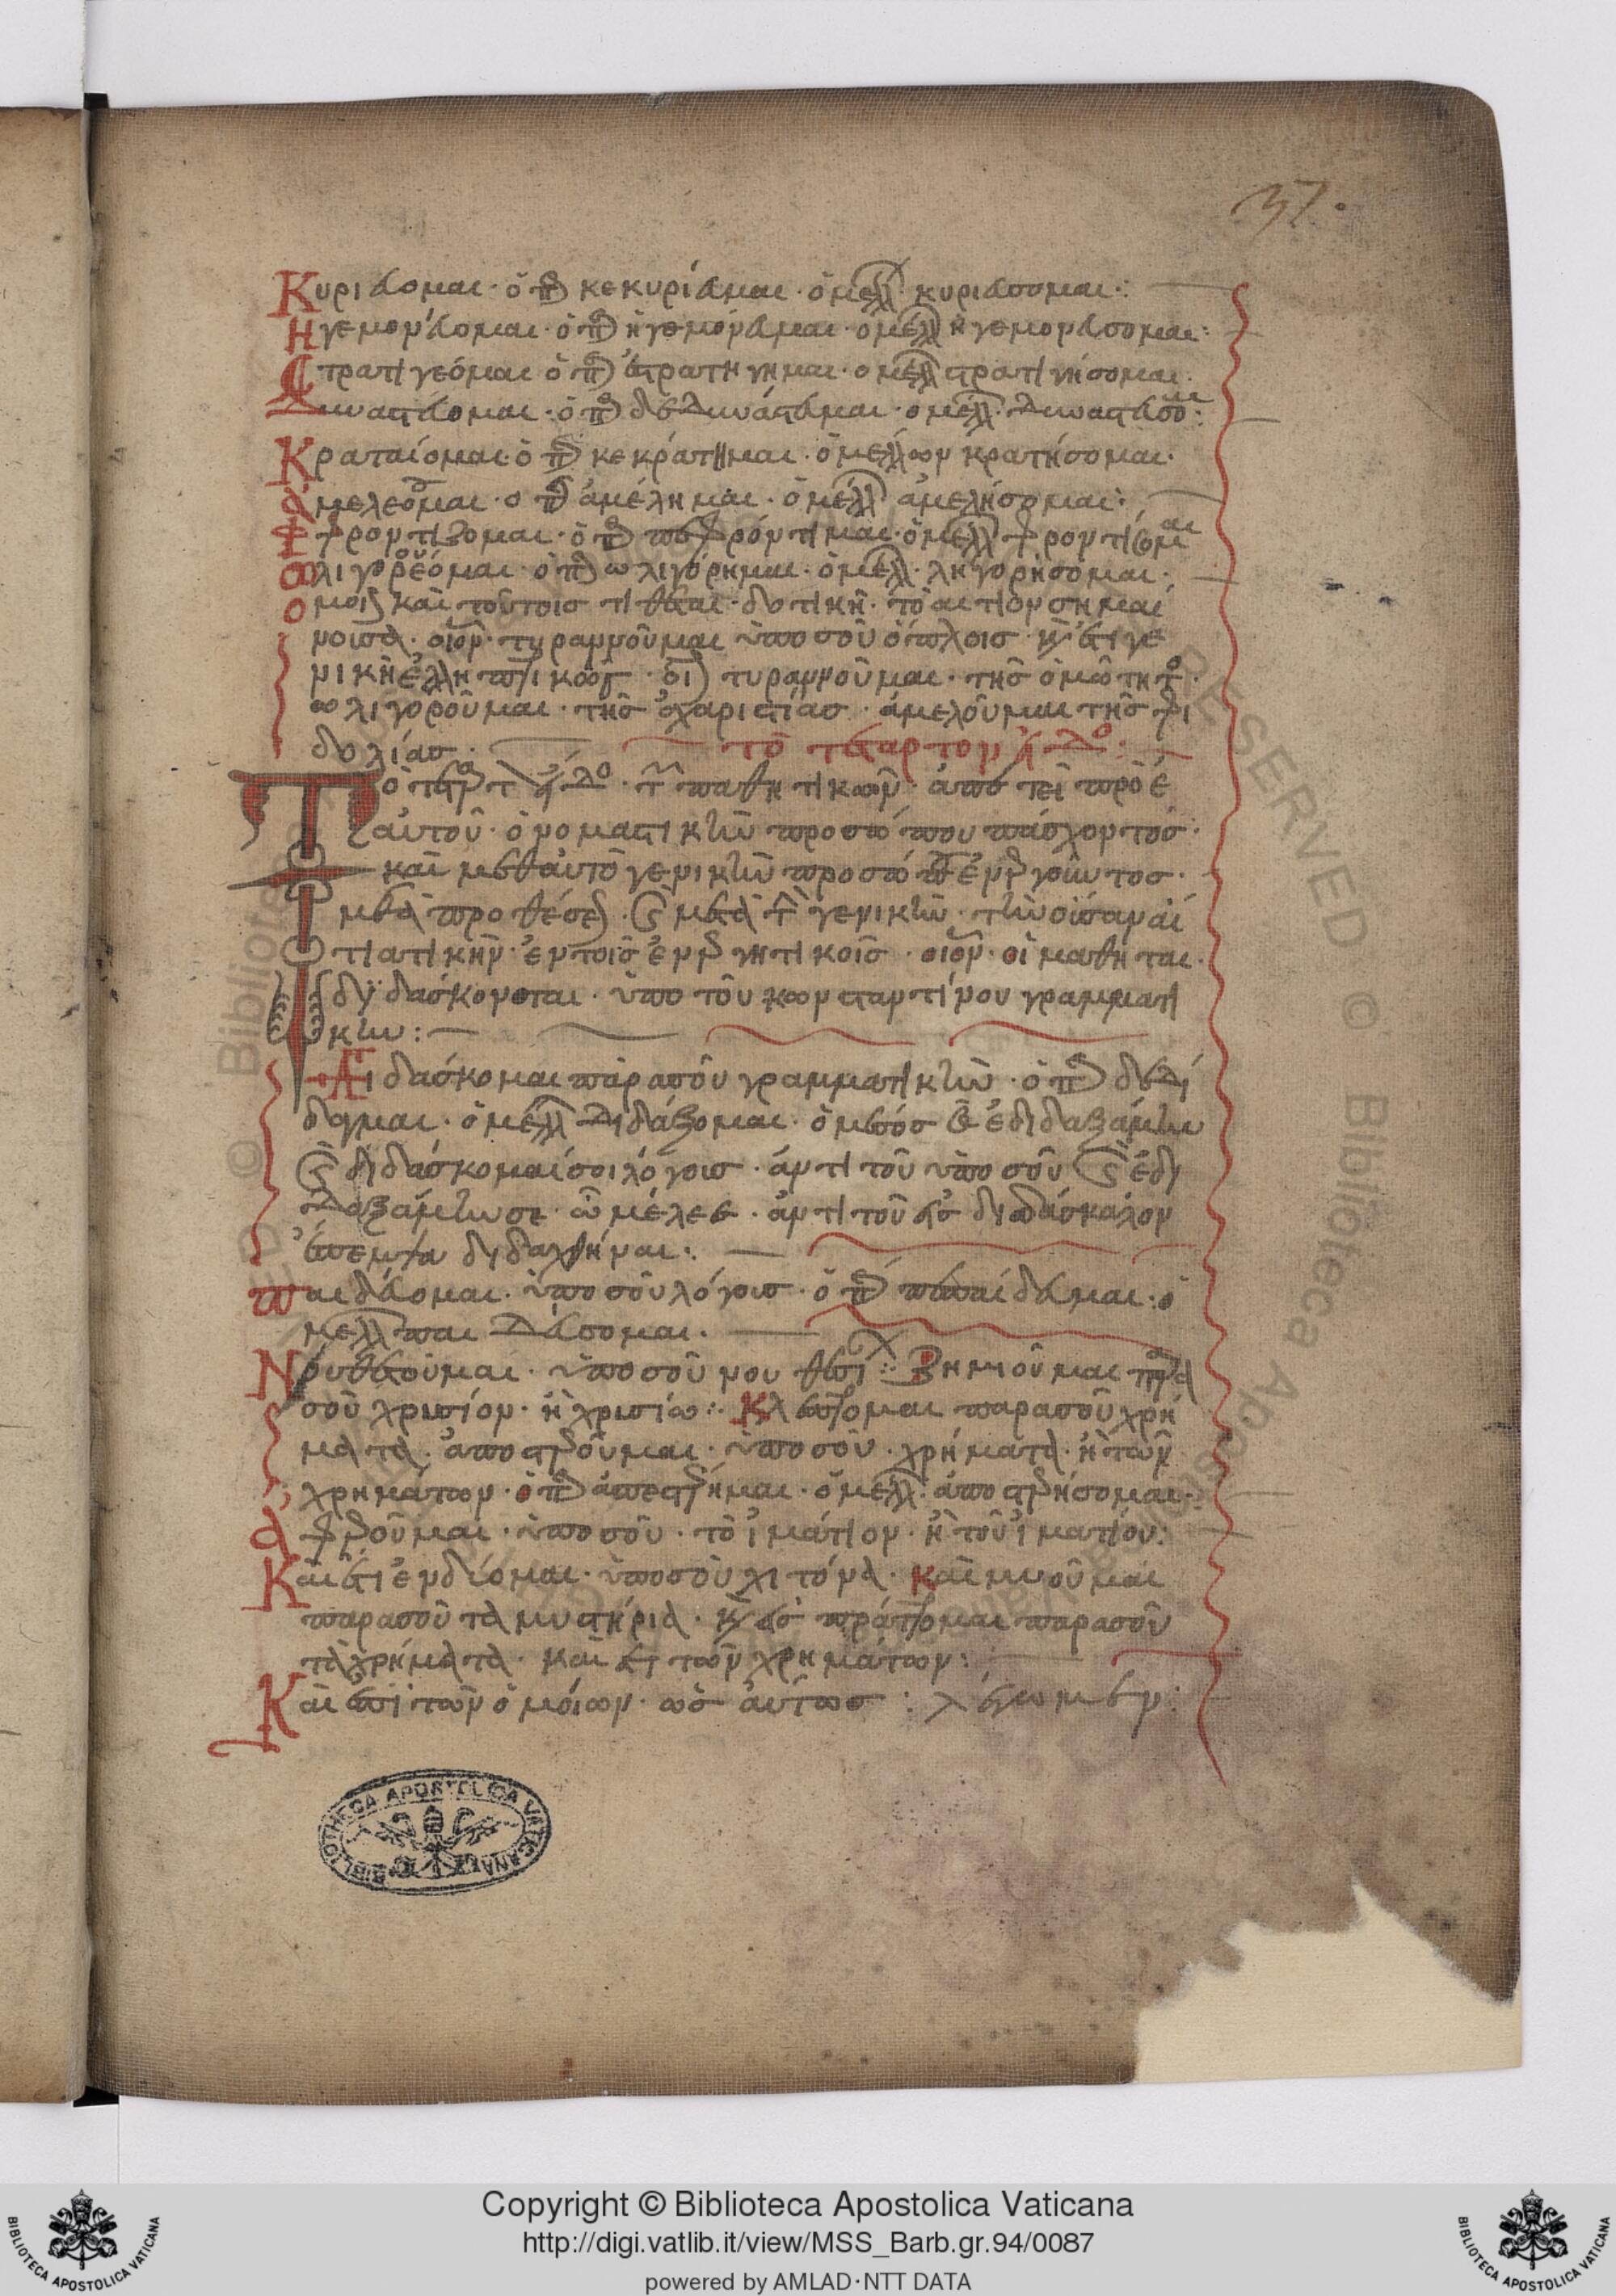 37.
Κυριεύομαι· ὁ πρ κεκυρίευμαι· ὁ μέλλ κυριεύσομαι:
Ἡγεμονεύομαι· ὁ πρ ἡγεμόνευμαι· ὁ μέλλ ἡγεμονεύσομαι:
Στρατιγεόμαι ὁ πρ ἐστρατήγημαι· ὁ μέλλ στρατιγήσομαι·
Δυναστεύομαι· ὁ πρ δεδυνάστευμαι· ὁ μέλλ δυναστεύσομ:
Κραταίομαι· ὁ πρ κεκράτημαι· ὁ μέλλων κρατήσομαι·
ἀμελεομαι· ὁ πρ ἀμέλημαι· ὁ μέλλ ἀμελήσομαι:
Φροντίζομαι· ὁ πρ πεφρόντιμαι· ὁ μέλλ φροντίσομαι
ὠλιγορεόμαι· ὁ πρ ὠλιγόρημαι· ὁ μέλλ ληγορήσομαι·
ομοί καὶ τούτοις τίθεται· δοτικὴ· τὸ αἴτιον σημαί
νουσα· οἷον· τυραννοῦμαι ὑπο σοῦ ὅπλοις· κ ἔστι γε
νικὴ ἐλλη· τυραννοῦμαι· τῆς ὀμότητο
ὠλιγοροῦμαι· τῆς ἀχαριστίας· ἀμελοῦμαι τῆς φι
δολίας· τὸ τέταρτον εἶδο:
Τὸ εἶδο· τ παθητικῶν· ἀπὸ πρὸ ἑ
αυτοῦ· ὀνομαστικὴν προσώπου πάσχοντος·
καὶ μεθ αυτὸ γενικὴν προσώπ ἐνεργοῦντος·
μετὰ προθέσε· μετὰ τ γενικὴν· τὴν οὖσαν αἰ
τιατικὴν· ἐν τοῖς ἐνεργητικοῖς· οἷον· οἱ μαθηται·
διδάσκονται· ὑπο τοῦ κωνσταντίνου γραμματι
κὴν:
Διδάσκομαι παρα σοῦ γραμματικὴν· ὁ πρ δεδί
δαγμαι· ὁ μέλλ διδάξομαι· ὁ μέσος ἐδιδαξάμην
διδάσκομαί σοι λόγοις· ἀντι τοῦ ὑπο σοῦ ἐδι
δαξάμην σε ὦ μέλεε· ἀντι τοῦ εἰς διδάσκαλον
ἔπεμψα διδαχθῆναι:
παιδεύομαι· ὑπο σοῦ λόγοις· ὁ πρ πεπαίδευμαι: ὁ
μελλ παιδεύσομαι·
Νουθετοῦμαι· ὑπο σοῦ νουθεσί: Ζημιοῦμαι παρα
σοῦ χρυσίον· ἢ χρυσίω: Κλέπτομαι παρα σοῦ χρή
ματα· ἀποστεροῦμαι· ὑπο σοῦ· χρήματα· ἢ τῶν
χρημάτων· ὁ πρ ἀπεστέρημαι· ὁ μέλλ ἀποστερήσομαι·
ἀφεροῦμαι· ὑπο σοῦ· τὸ ἱμάτιον· ἢ τοῦ ἱματίου:
Και ἔτι ἐνδύομαι· ὑπο σοῦ χιτόνα· και μυοῦμαι
παρα σοῦ τα μυστήρια· πράττομαι παρα σοῦ
τα χρήματα· καὶ τῶν χρημάτων:
Και ἐπὶ τῶν ὁμοίων· ὡσ αὕτως: λέγωμεν:
BIBLIOTHECA APOSTOLICA VATICANA
Copyright © Biblioteca Apostolica Vaticana
http://digi.vatlib.it/view/MSS_Barb.gr.94/0087
powered by AMLAD·NTT DATA
BIBLIOTECA APOSTOLICA VATICANA
BIBLIOTECA APOSTOLICA VATICANA